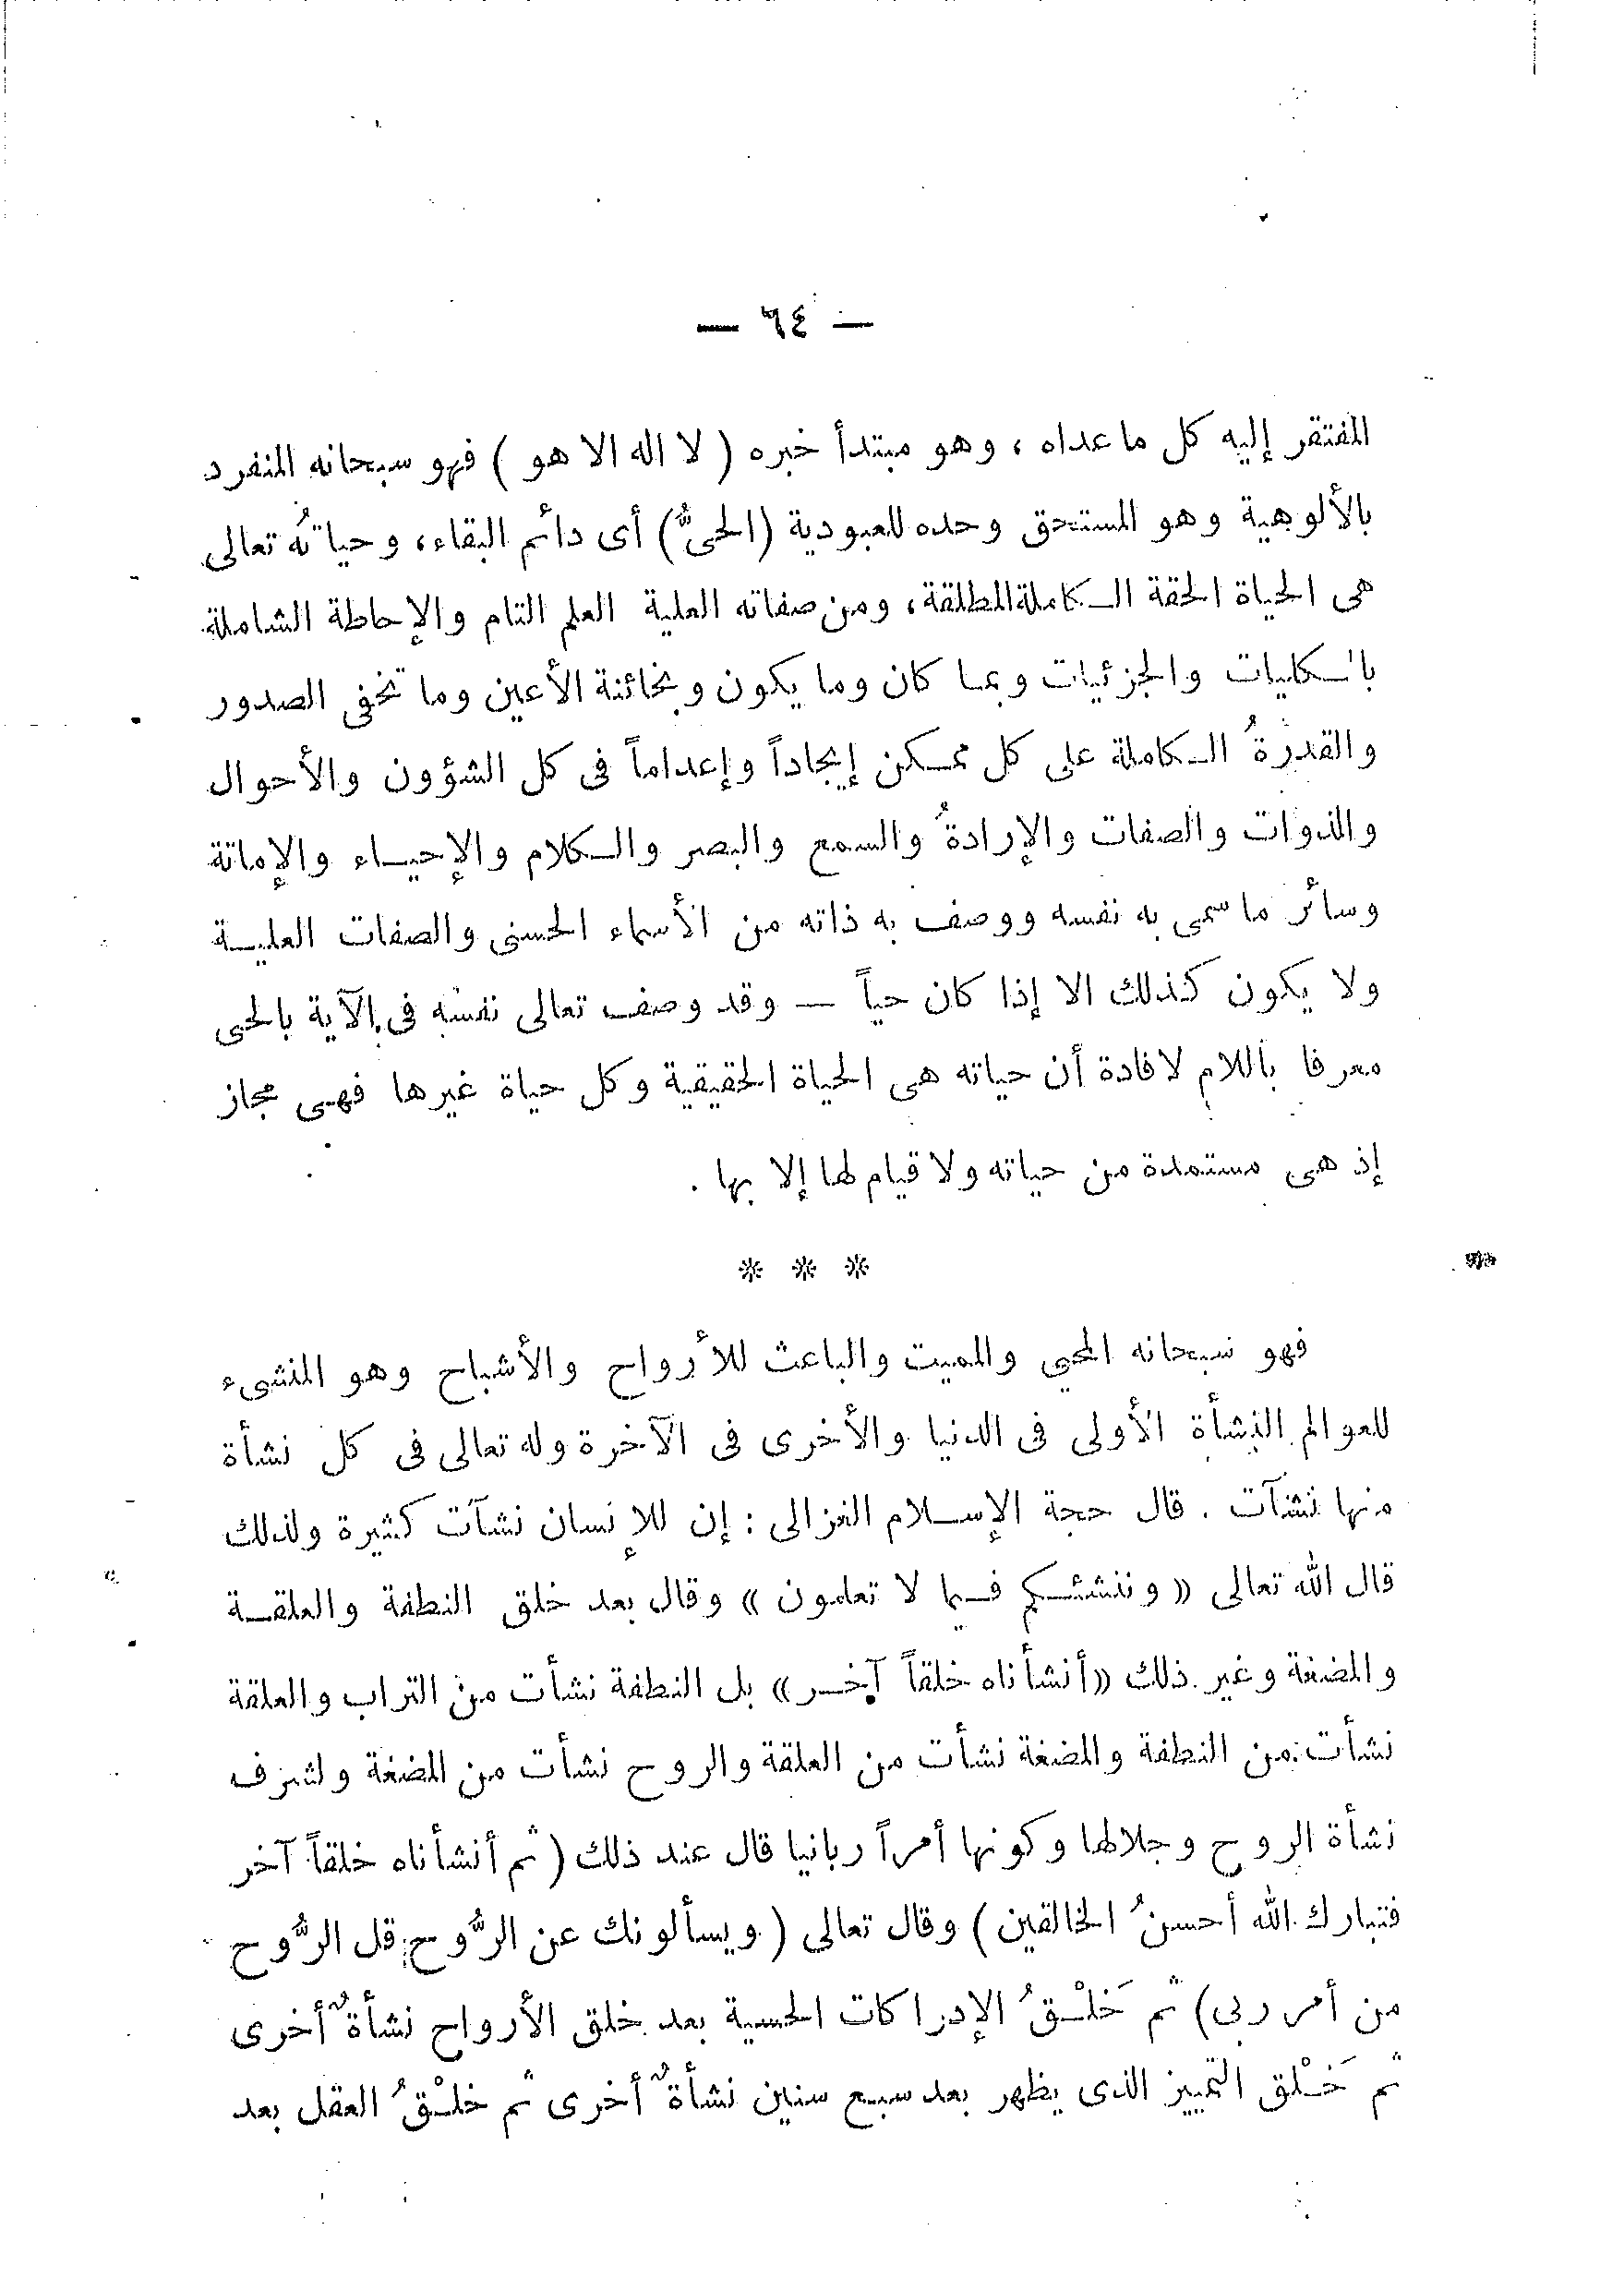 — ٦٤ —
المفتقر إليه كل ما عداه ، وهو مبتدأ خبره ( لا اله الا هو ) فهو سبحانه المنفرد
بالألوهية وهو المستحق وحده للعبودية (الحىُّ) أى دائم البقاء، وحياتُه تعالى
هى الحياة الحقة الـكاملة المطلقة، ومن صفاته العلية العلم التام والإحاطة الشاملة
بالـكليات والجزئيات وبما كان وما يكون وبخائنة الأعين وما تخفى الصدور
والقدرةُ الـكاملة على كل ممـكن إيجاداً وإعداماً فى كل الشؤون والأحوال
والذوات والصفات والإرادةُ والسمع والبصر والـكلام والإحيـاء والإماتة
وسائر ما سمى به نفسه ووصف به ذاته من الأسماء الحسنى والصفات العليـة
ولا يكون كذلك الا إذا كان حياً — وقد وصف تعالى نفسه فى الآية بالحى
معرفا باللام لافادة أن حياته هى الحياة الحقيقية وكل حياة غيرها فهى مجاز
إذ هى مستمدة من حياته ولا قيام لها إلا بها .
* * *
فهو سبحانه المحيي والمميت والباعث للأرواح والأشباح وهو المنشىء
للعوالم النشأة الأولى فى الدنيا والأخرى فى الآخرة وله تعالى فى كل نشأة
منها نشآت . قال حجة الإسـلام الغزالى : إن للإنسان نشآت كثيرة ولذلك
قال الله تعالى « وننشئـكم فـيما لا تعلمون » وقال بعد خلق النطفة والعلقـة
والمضغة وغير ذلك «أنشأناه خلقاً آخـر» بل النطفة نشأت من التراب والعلقة
نشأت من النطفة والمضغة نشأت من العلقة والروح نشأت من المضغة ولشرف
نشأة الروح وجلالها وكونها أمراً ربانيا قال عند ذلك ( ثم أنشأناه خلقاً آخر
فتبارك الله أحسنُ الخالقين ) وقال تعالى ( ويسألونك عن الرُّوح قل الرُّوح
من أمر ربى) ثم خَلْـقُ الإدراكات الحسية بعد خلق الأرواح نشأةٌ أخرى
ثم خَـلْق التمييز الذى يظهر بعد سبع سنين نشأةٌ أخرى ثم خلْـقُ العقل بعد